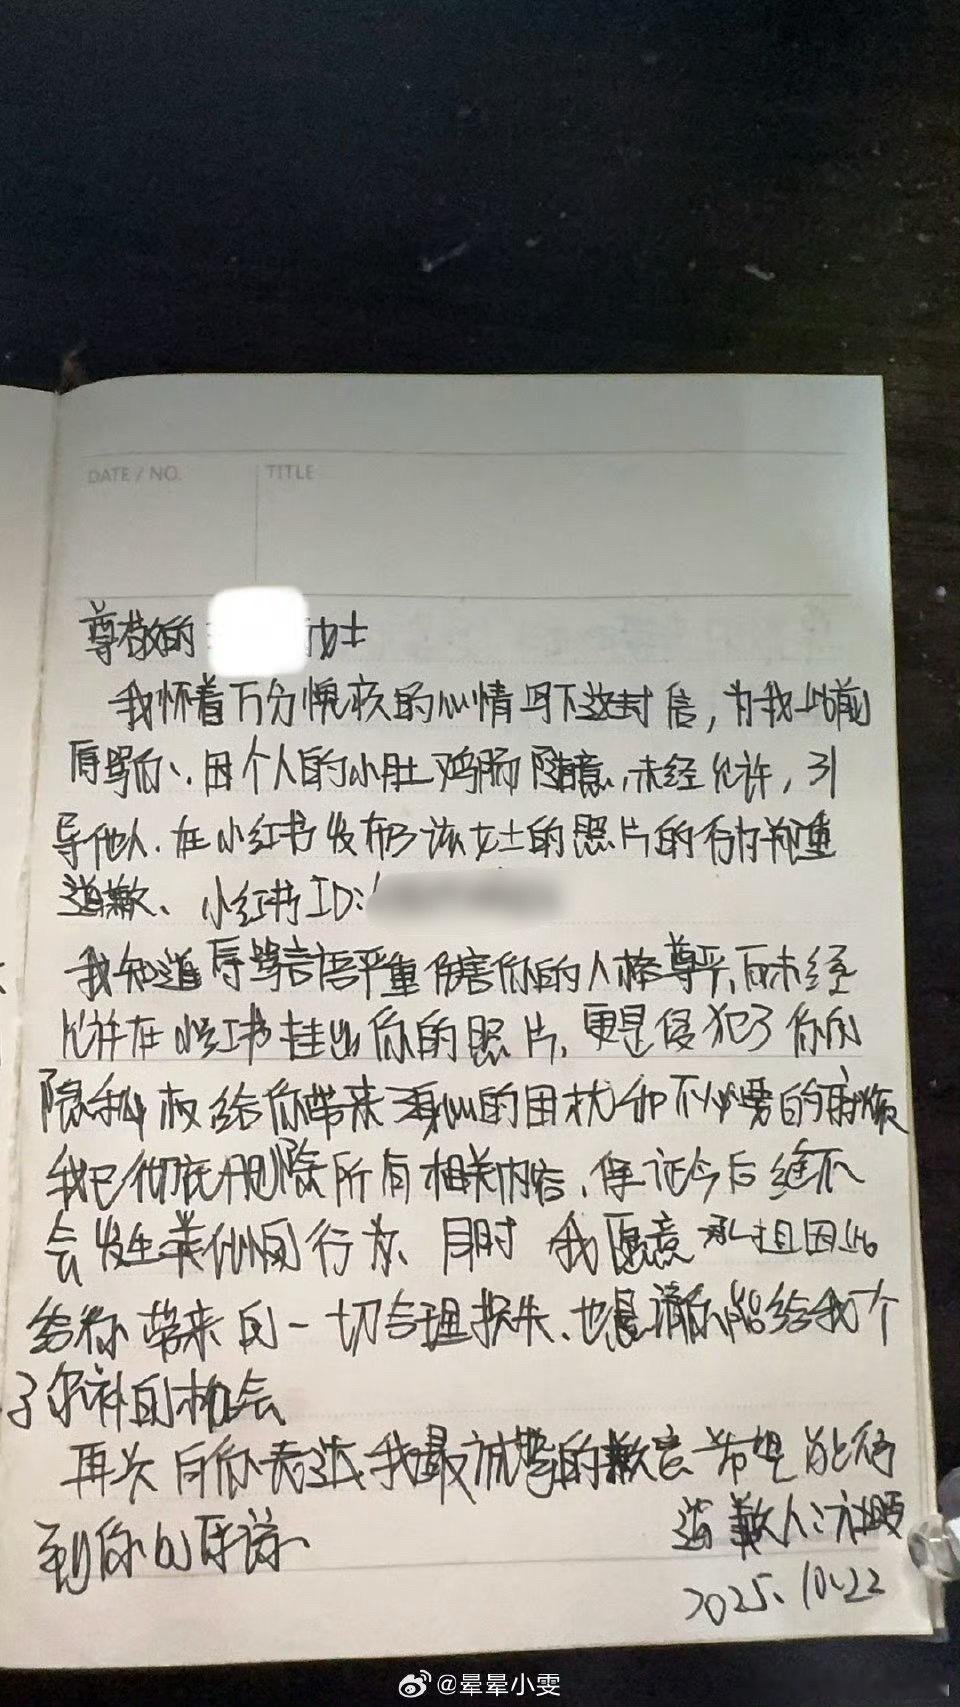 DATE / NO.
TITLE
尊敬的 女士
我怀着万分愧疚的心情写下这封信，为我以前
辱骂你、因个人的小肚鸡肠 随意，未经允许，引
导他人、在小红书发布了该女士的照片的行为郑重
道歉、小红书ID:
我知道辱骂言语严重伤害你的人格尊严、而未经
允许在小红书挂出你的照片、更是侵犯了你的
隐私权给你带来 身心的困扰和不必要的麻烦
我已彻底删除所有相关内容、保证今后绝不
会发生类似的行为、同时 我愿意承担因此
给你带来的一切合理损失、也恳请你能给我个
了弥补的机会
再次向你表达我最诚挚的歉意 希望能得
到你的原谅、
道歉人:
2025.10.22
@晕晕小雯